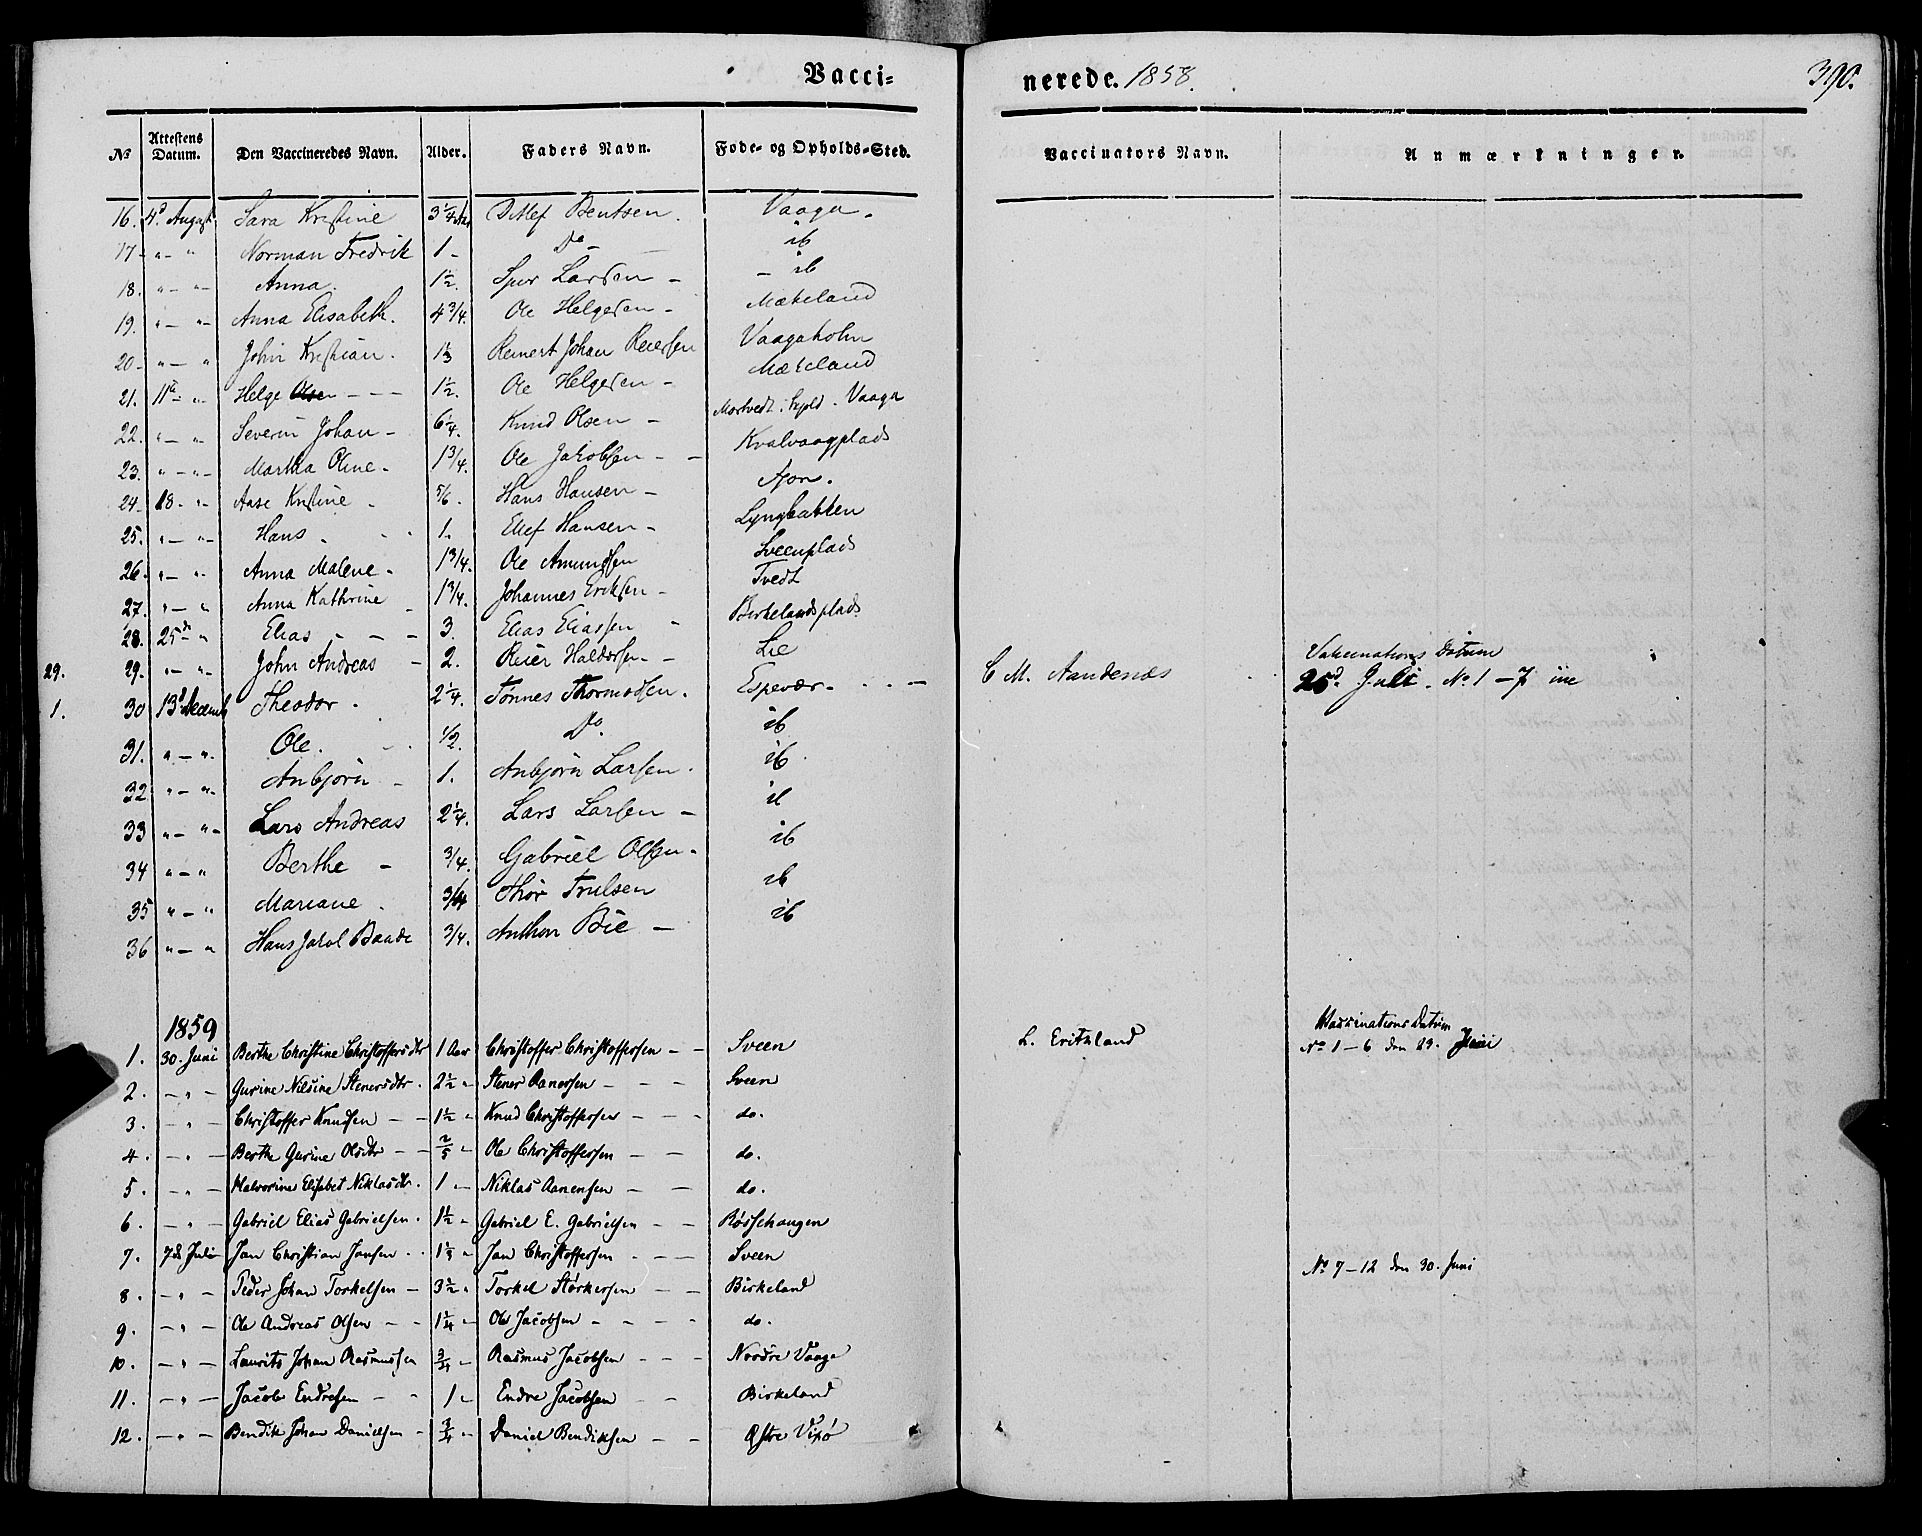 Vacci= nerede. 1858. 390.
No Attestens Datum. Den Vaccineredes Navn. Alder. Faders Navn. Føde- og Opholds-Sted. Vaccinators Navn. Anmærkninger.
16. 4d August Sara Kristine 3 1/4 Aar Ditlef Bentsen. Vaaga.
17 - " - " Norman Fredrik 1 - Do - ib
18. " - " - Anna. 1 1/2. Larsen - - ib
19. " - " - Anna Elisabeth. 4 3/4. Ole Helgesen - Mækeland
20 - " - " John Kristian. 1 1/3 Reinert Johan Reiersen Vaagaholm
21. 11te - " Helge Olsen - - - 1 1/2. Ole Helgesen - Mækeland
22. " - " Severin Johan - 6 1/4. Knud Olsen - Mortvedt. Vaaga
23. " - " - Martha Oline - 1 3/4. Ole Jakobsen - - Kvalvaagplads
24 - 18 - " - Aase Kristine - 5/6. Hans Hansen -
25. " - " - Hans. 1. Ellef Hansen - Lyngbakken
26. " - " - Anna Malene - 1 3/4. Ole Amundsen Sveenplads
27. " - " Anna Kathrine - 1 3/4. Johannes Eriksen - Tvedt
28. 25de " Elias - - - 3. Elias Eliassen - Birkelandsplads
29. 29. " - " - John Andreas - 2. Reier Haldorsen - - Lie
1. 30 13d Decemb Theodor. 2 1/4. Tønnes Thormodsen. Espevær. - - - C M. Aandenæs Vaksinations Datum
25d. Juli. No. 1 - 7
31. " - " - Ole. 1/2. Do. ib
32 " - " - Anbjørn - 1. Anbjørn Larsen. ib.
33 " - " - Lars Andreas 2 1/4. Lars Larsen - ib
34 " - " Berthe - 3/4. Gabriel Olsen - ib
35 " - " Mariane. 3/4 Thor Trulsen ib
36 " - " Hans Jakob Baade 3/4. Anthon Bie - ib
1859
1. 30. Juni Berthe Christine Christoffersdtr 1 Aar Christoffer Christoffersen - - Sveen L. Erikland Vaccinations Datum
No 1 - 6 den 29. Juni
2. - " - Gurine Nilsine Stenersdtr. 2 1/2 " Stener Aanensen - - - Sveen
3. - " - Christoffer Knudsen - - 1 1/2 - Knud Christoffersen - - - do.
4. - " - Berthe Gurine Olsdtr - - 2/5 - Ole Christoffersen - - do.
5. - " - Halvorine Elisabet Niklasdtr. 1 - Niklas Aanensen - - do.
6. - " - Gabriel Elias Gabrielsen. 1 1/2 - Gabriel E. Gabrielsen - - Røsschangen
7. 7de Juli Jan Christian Jansen.. 1 1/3 - Jan Christoffersen - - - Sveen No 7 - 12 den 30. Juni
8. - " - Peder Johan Torkelsen - 3 1/2 " Torkel Størkersen - - Birkeland
9. - " - Ole Andreas Olsen - - 1 1/4 - Ole Jacobsen - - - - do.
10. - " - Laurits Johan Rasmussen 3/4 - Rasmus Jacobsen - - - Nordre Vaage
11. - " - Jacob Endresen - - 1 - Endre Jacobsen - - Birkeland
12. - " - Bendik Johan Danielsen - 3/4 - Daniel Bendiksen - - Østre Vixø